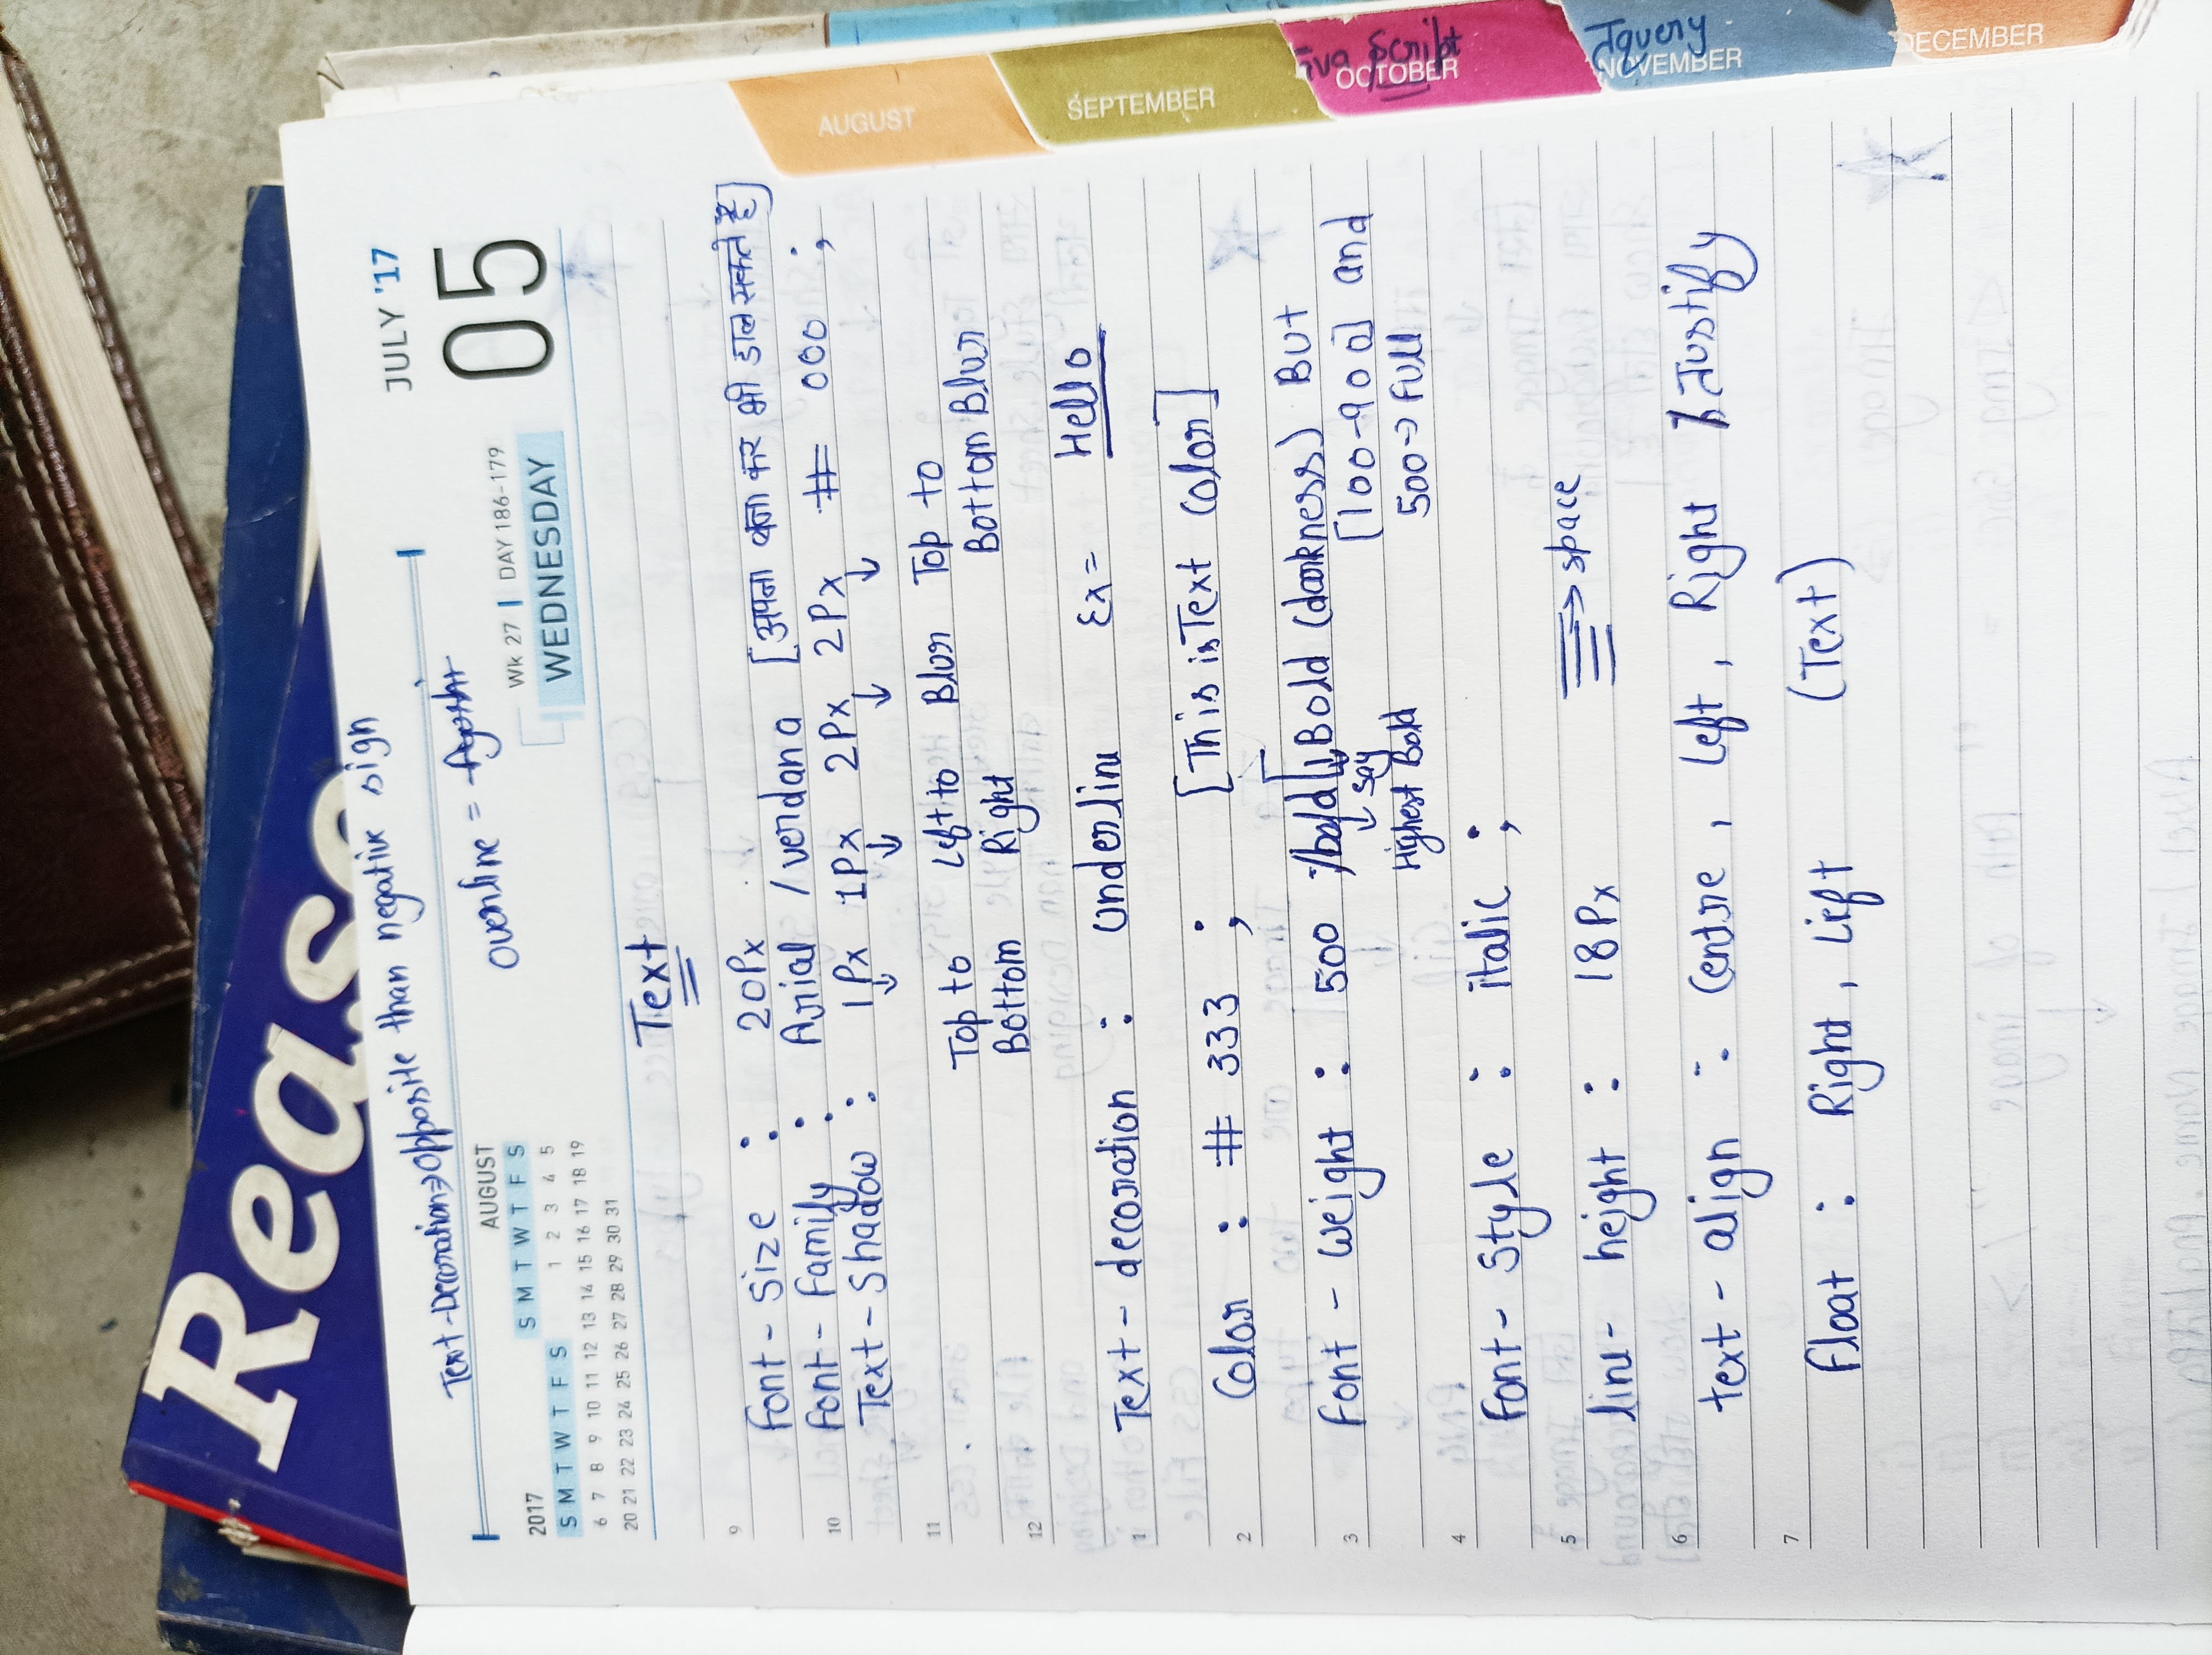 Reaso
Text-Decoration⇒opposite than negative sign
overline = Ayushi
JULY '17
05
AUGUST
2017
S M T W T F S
S M T W T F S
1 2 3 4 5
6 7 8 9 10 11 12 13 14 15 16 17 18 19
20 21 22 23 24 25 26 27 28 29 30 31
Wk 27 | DAY 186-179
WEDNESDAY
Text
9
font-size : 20Px
font-family : Arial / verdana [अपना बना कर भी डाल सकते है]
10
Text-Shadow : 1Px 1Px 2Px 2Px # 000 ;
11
Top to Left to Blur Top to
Bottom Right Bottom Blur
12
Text-decoration : Underline Ex = Hello
1
Color : # 333 ; [This is Text Color]
2
font-weight : 500 /bold [↓Bold (darkness) But
3
↓ say [100-900] and
Highest Bold 500→ full
4
font-Style : italic ;
5
line-height : 18Px → space
6
text-align : Centre, Left, Right / Justify
7
float : Right, Left (Text)
AUGUST
SEPTEMBER
OCTOBER
Script
NOVEMBER
Jquery
DECEMBER